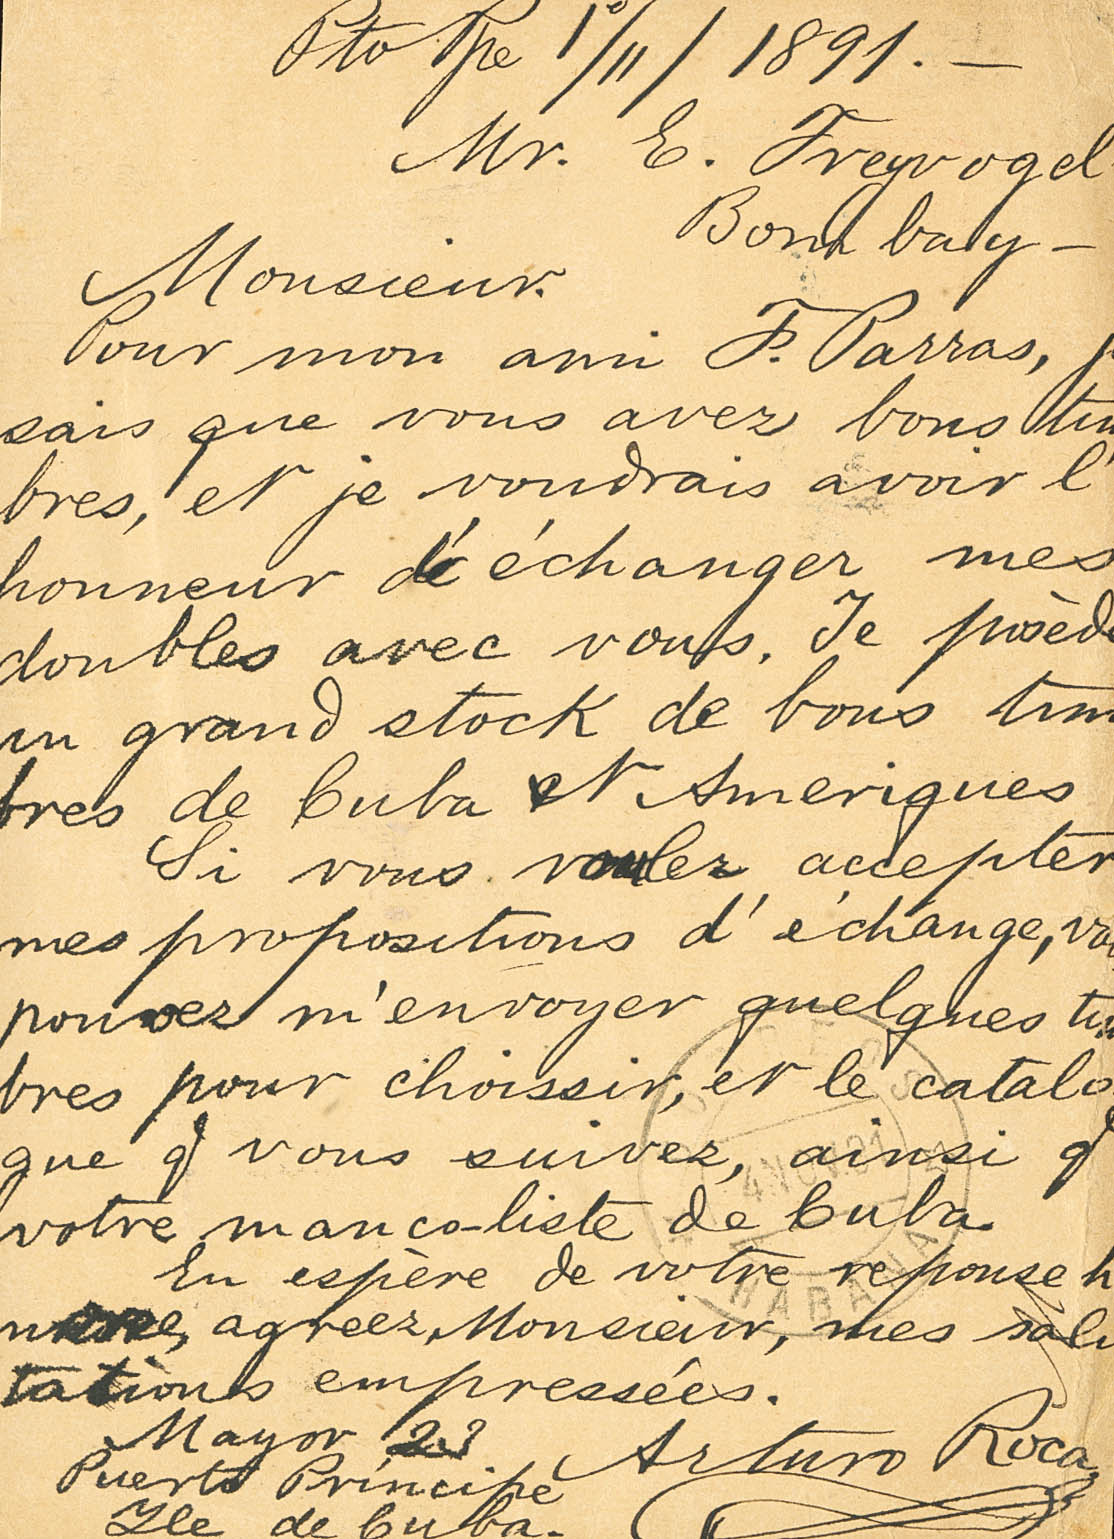 Pto Ppe 1º/11/1891. —
Mr. E. Freyvogel
Bombay —
Monsieur.
Pour mon ami F. Parras, j
sais que vous avez bons tim
bres, et je voudrais avoir l'
honneur d'échanger mes
doubles avec vous. Je posède
un grand stock de bons tim
bres de Cuba et Ameriques
Si vous voulez accepter
mes propositions d'échange, vou
pouvez m'envoyer quelques tim
bres pour choissir, et le catalo
gue q vous suivez, ainsi q
votre manco-liste de Cuba.
En espère de votre reponse
agreez, Monsieur, mes salu
tations empressées.
Mayor 23 Arturo Roca
Puerto Príncipe
Ile de Cuba.
4 NOV. 91
HABANA